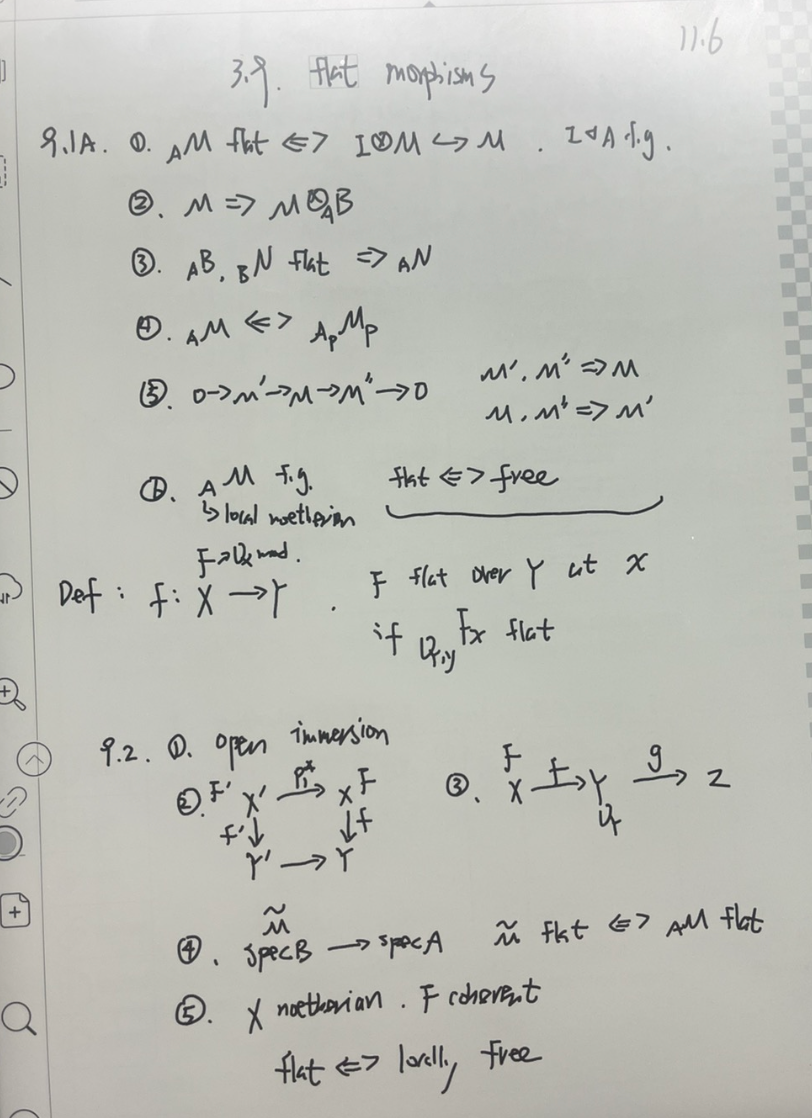 11.6
3.9. flat morphisms
9.1A. ①. _A M flat <=> I⊗M ↪ M . I◁A f.g.
②. M => M⊗_A B
③. _A B, _B N flat => _A N
④. _A M <=> _{A_p} M_p
⑤. 0→M'→M→M''→0 M'. M'' => M
M. M'' => M'
①. _A M f.g. flat <=> free
↳ local noetherian
F→O_X mod.
Def : f: X → Y . F flat over Y at x
if _{O_{Y,y}} F_x flat
9.2. ①. open immersion
②. F' X' → X F
f'↓ ↓f
Y' → Y
③. F
X f→ Y g→ Z
O_Y
④. M̃
spec B → spec A M̃ flat <=> _A M flat
⑤. X noetherian . F coherent
flat <=> locally free